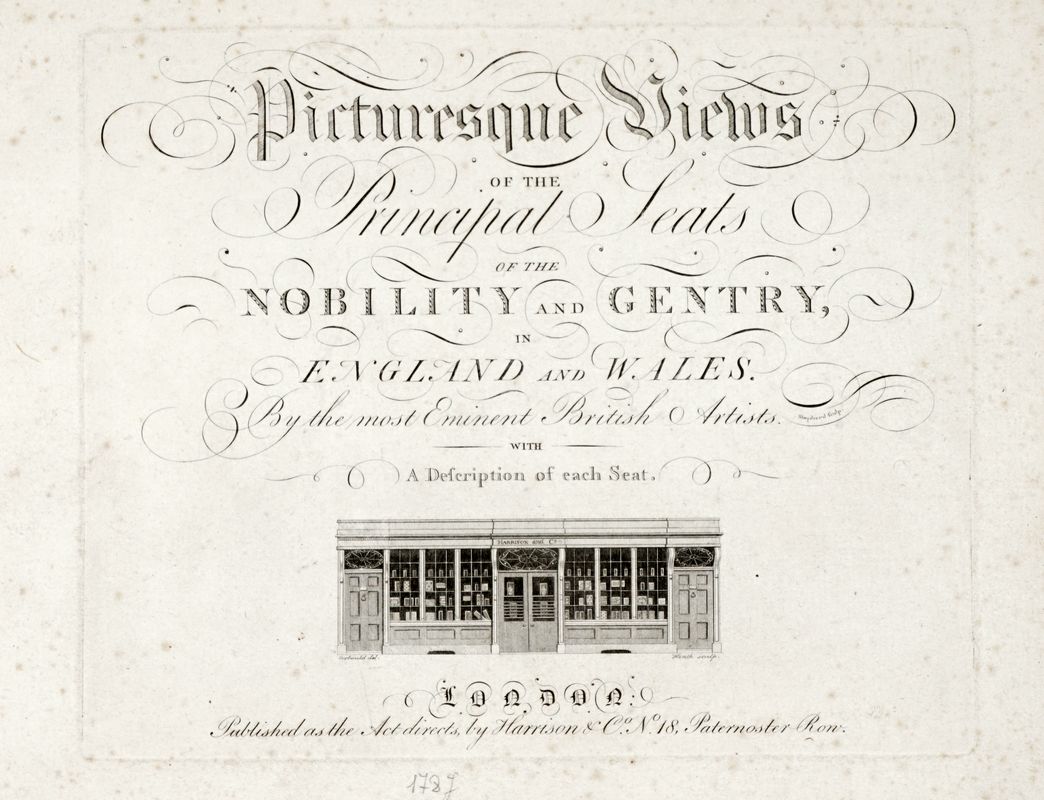 Picturesque Views
OF THE
Principal Seats
OF THE
NOBILITY AND GENTRY,
IN
ENGLAND AND WALES.
By the most Eminent British Artists.
WITH
A Deſcription of each Seat.
HARRISON and Co.
Heath sculp.
LONDON:
Published as the Act directs, by Harrison & Co. No. 18, Paternoster Row.